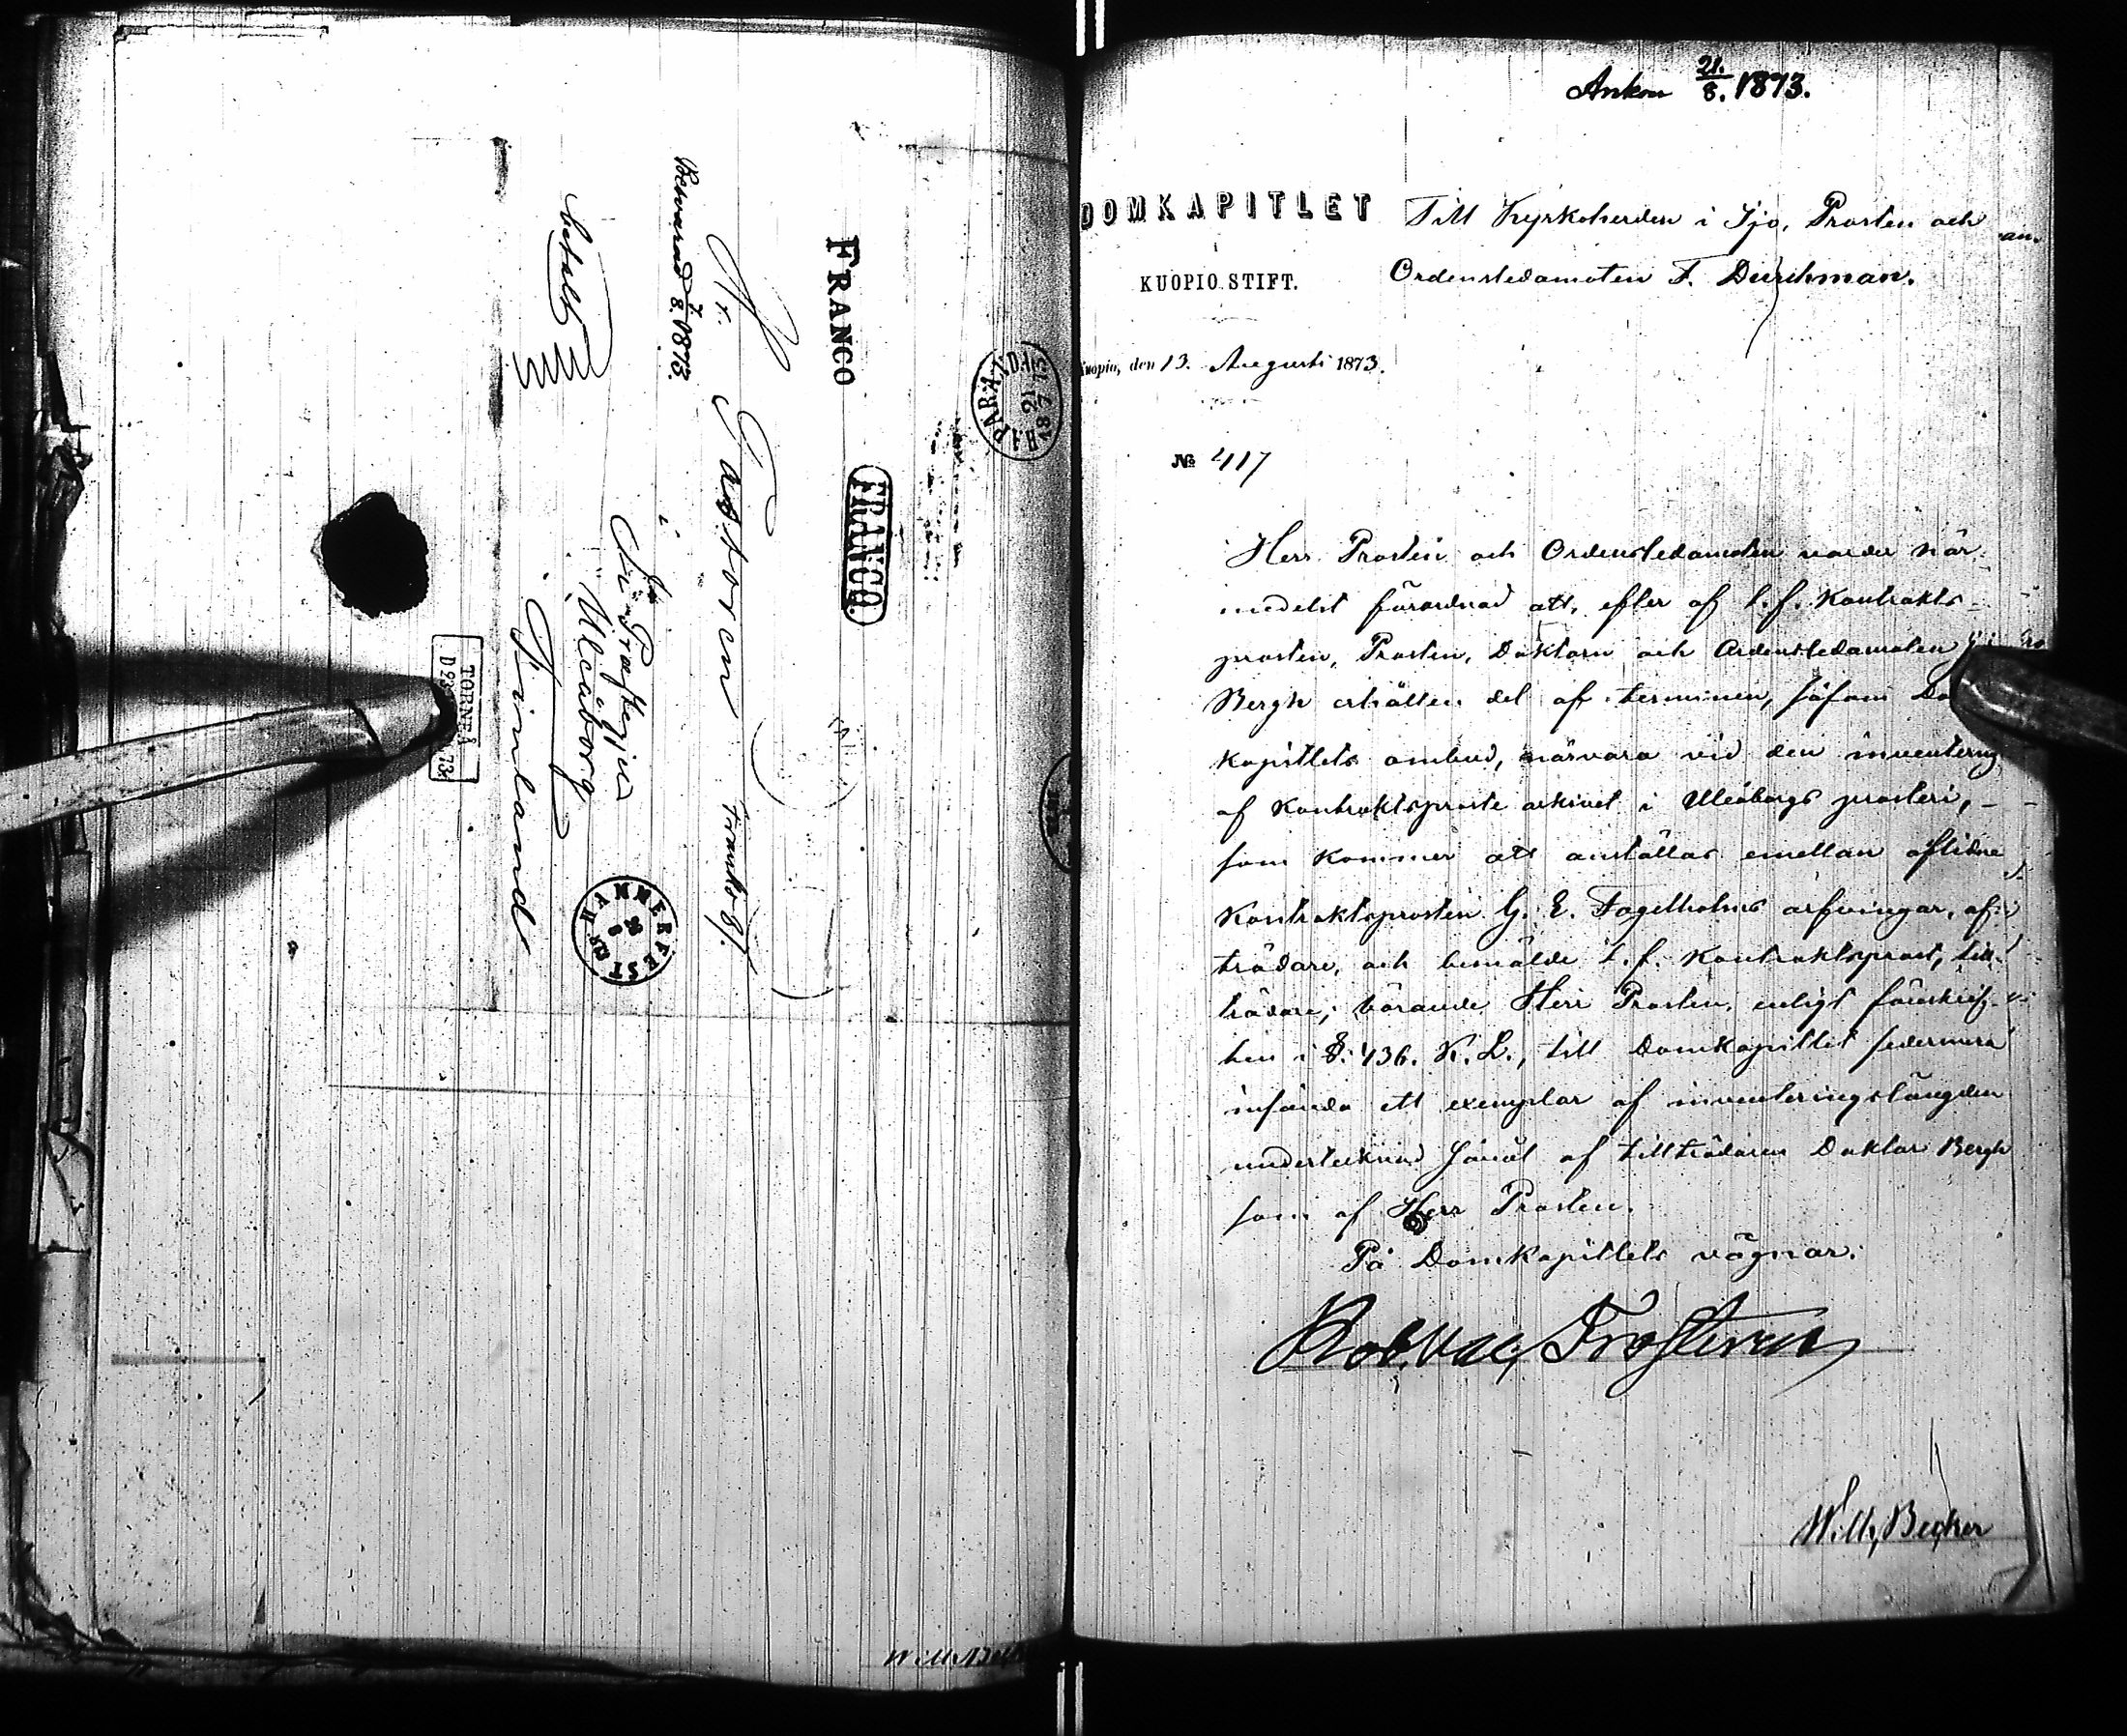 FRANCO
FRANCO.
Hr. Pastoren
franko bf.
Besvarad 7/8. 1873.
i
Ijo Præstegjeld
Uleaborg
Finland
betalt
HAMMERFEST
TORNEÅ
HAPARANDA
Ankom 21./8. 1873.
DOMKAPITLET
KUOPIO STIFT.
Till Kyrkoherden i Ijo, Prosten och
Ordensledamoten F. Durchman.
Kuopio, den 13. Augusti 1873.
№ 417
Herr Prosten och Ordensledamoten varder här-
medelst förordnad att, efter af t.f. Kontrakts-
prosten, Prosten, Doktorn och Ordensledamoten
Bergh erhållen del af terminen, såsom Do
kapitlets ombud, närvara vid den inventering
af Kontraktsproste arkivet i Uleåborgs prosteri, -
som kommer att anställas emellan aflidne
Kontraktsprosten G. E. Fogelholms arfvingar, af-
trädare, och bemälde t.f. Kontraktsprost, till-
trädare; börande Herr Prosten, enligt föreskrif-
ten i §. 436. K. L., till Domkapitlet sedermera
insända ett exemplar af inventeringslängden
undertecknad såväl af tillträdaren Doktor Bergh
som af Herr Prosten.
På Domkapitlets vägnar:
Rob. Val. Frosterus
Wilh. Becker